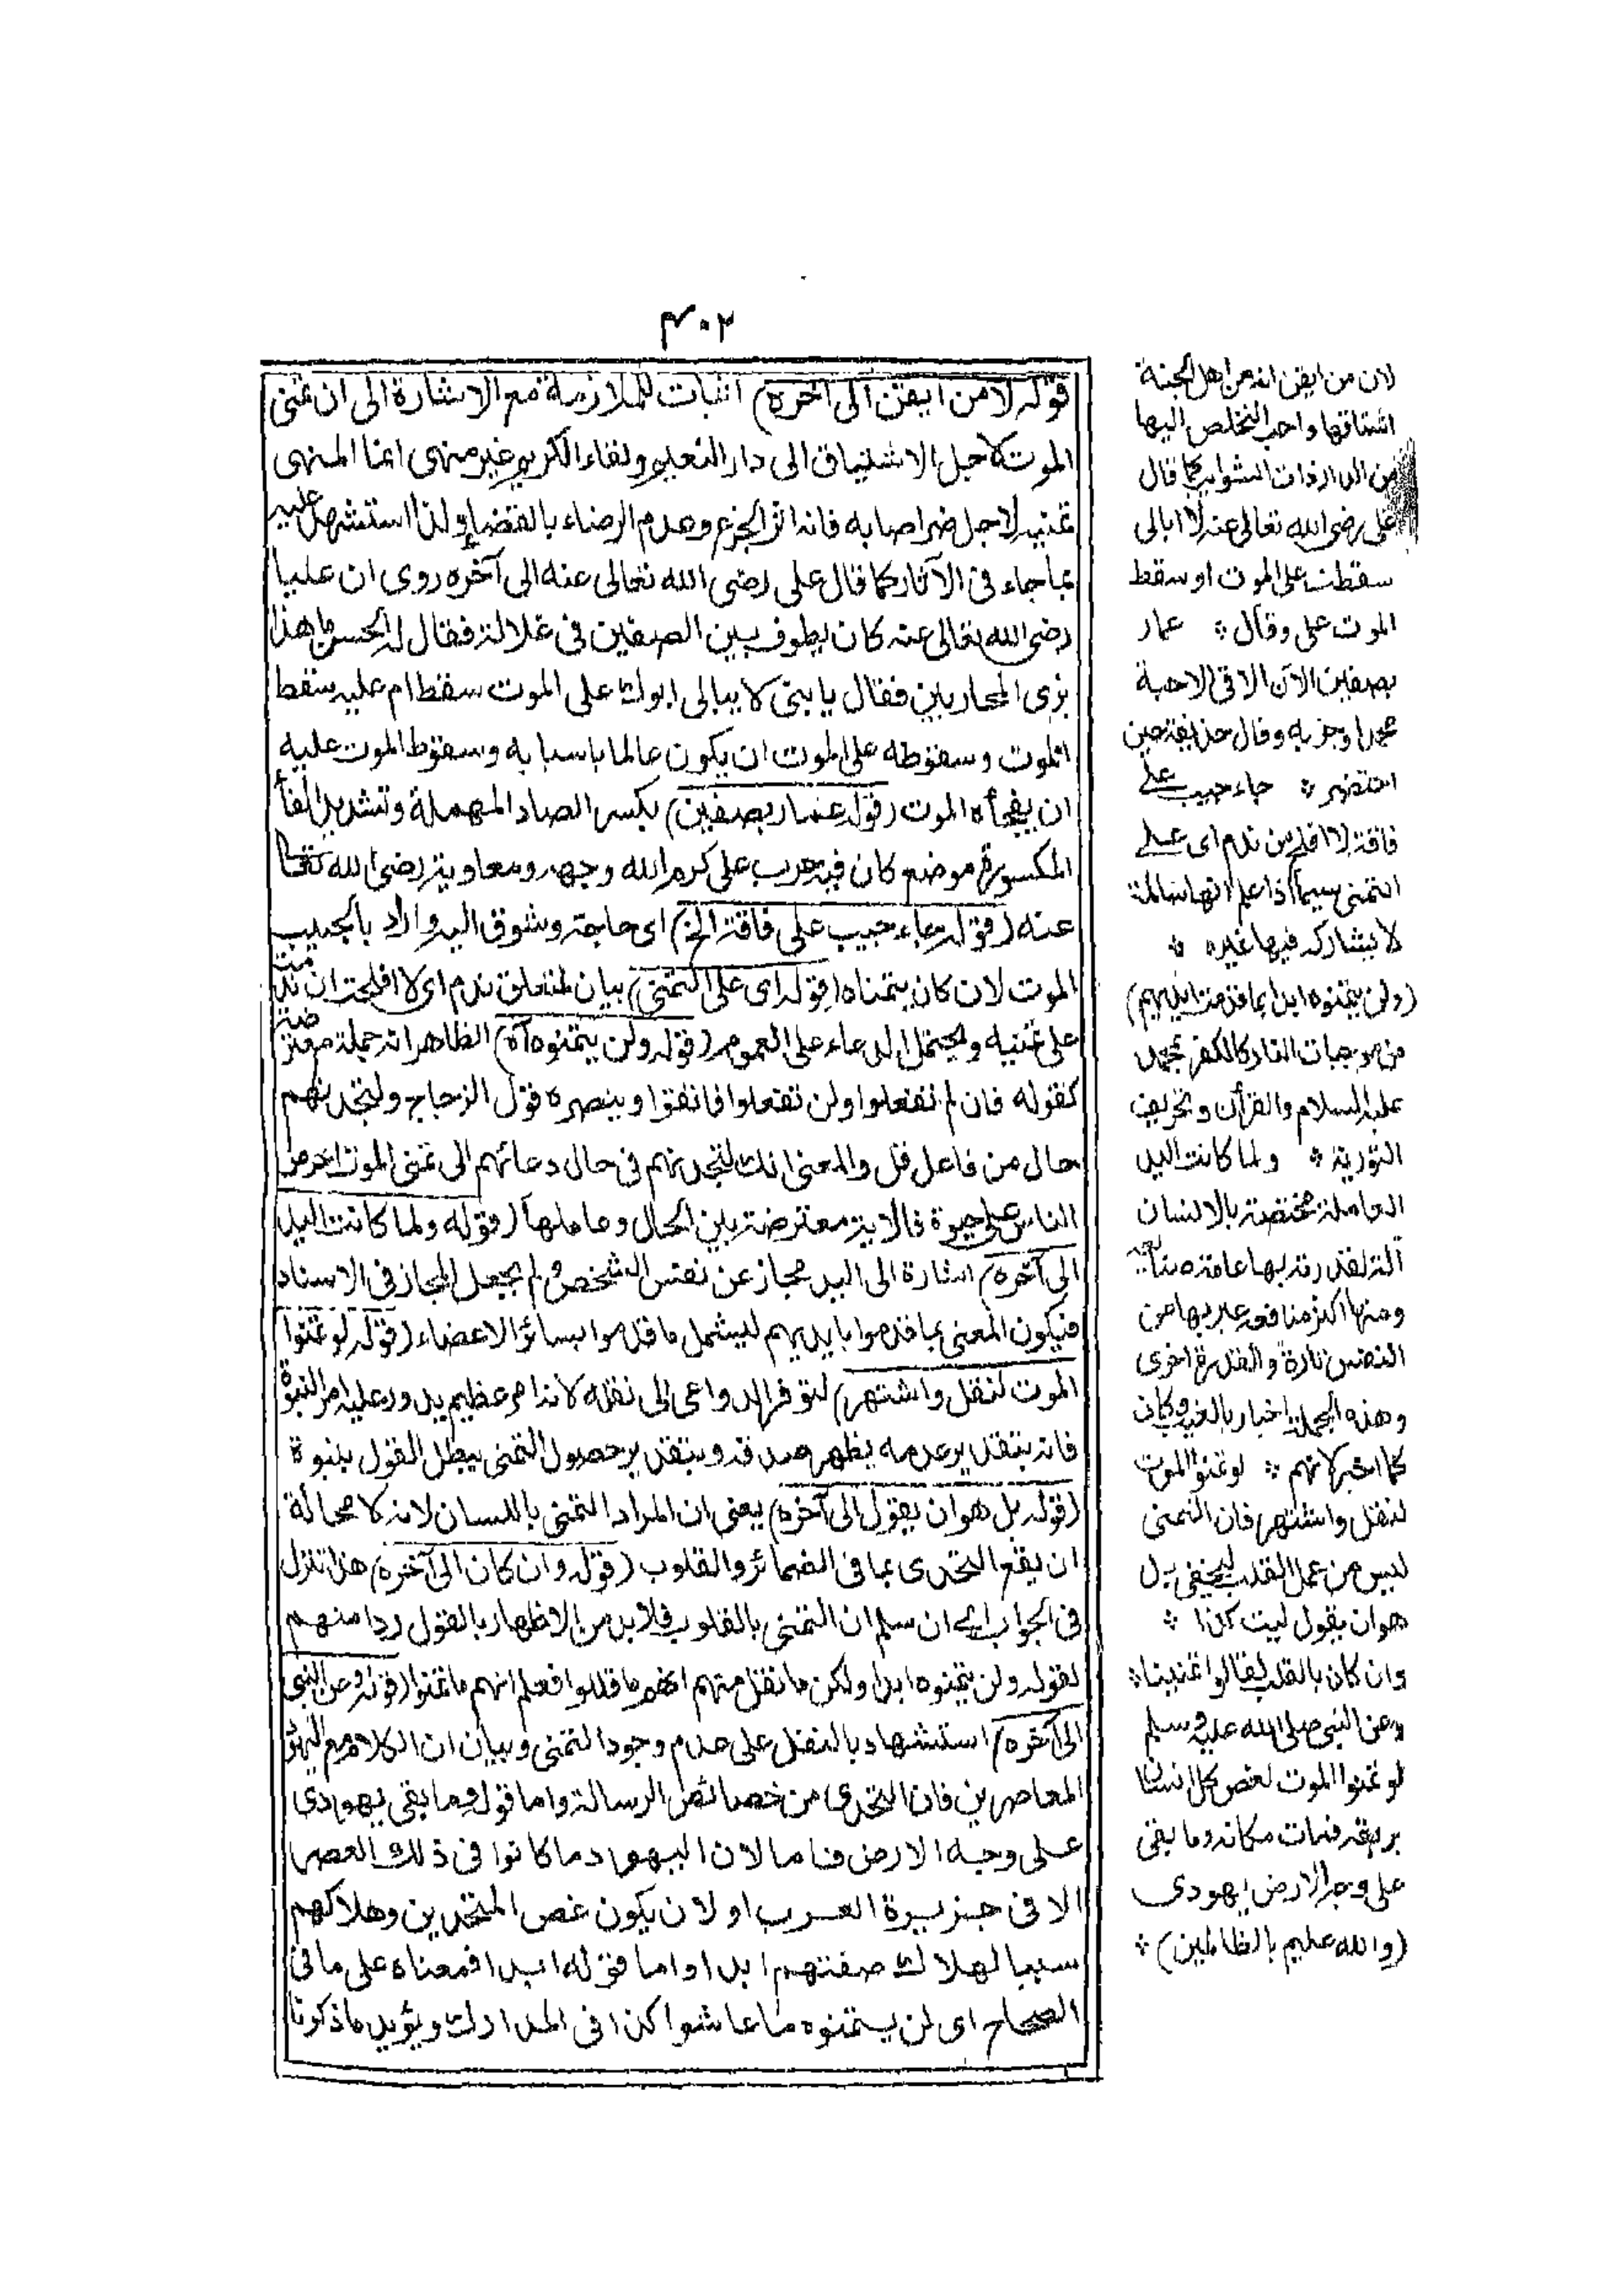 ٤٠٢
قوله لا من ايقن الى آخره) اثبات للملازمة مع الاشارة الى ان تمنى
الموت لاجل الاشتياق الى دار النعيم ولقاء الكريم غير منهى انما المنهى
تمنيه لاجل ضر اصابه فانه اثر الجزع وعدم الرضاء بالقضاء ولذا استشهد عليه
بما جاء فى الآثار كما قال على رضى الله تعالى عنه الى آخره روى ان عليا
رضى الله تعالى عنه كان يطوف بين الصفين فى غلالة فقال له الحسن ما هذا
بزى المحاربين فقال يا بنى لا يبالى ابوك على الموت سقط ام عليه سقط
الموت وسقوطه على الموت ان يكون عالما باسبابه وسقوط الموت عليه
ان يفجأه الموت (قوله عمار بصفين) بكسر الصاد المهملة وتشديد الفاء
المكسورة موضع كان فيه حرب على كرم الله وجهه ومعاوية رضى الله تعالى
عنه (قوله جاء حبيب على فاقة الخ) اى حاجة وشوق اليه واراد بالحبيب
الموت لان كان يتمناه (قوله اى على التمنى) بيان لمتعلق ندم اى لا افلحت ان ندمت
على تمنيه ويحتمل الدعاء على العموم (قوله ولن يتمنوه آه) الظاهر انه جملة معترضة
كقوله فان لم تفعلوا ولن تفعلوا فاتقوا وينصره قول الزجاج ولتجدنهم
حال من فاعل قل والمعنى انك لتجدنهم فى حال دعائهم الى تمنى الموت احرص
الناس على حيوة فالاية معترضة بين الحال وعاملها (قوله ولما كانت اليد
الى آخره) اشارة الى اليد مجاز عن نفس الشخص ولم يجعل المجاز فى الاسناد
فيكون المعنى بما قدموا بايديهم ليشمل ما قدموا بسائر الاعضاء (قوله لو تمنوا
الموت لنقل واشتهر) لتوفر الدواعى الى نقله لانه امر عظيم يدور عليه امر النبوة
فانه بتقدير عدمه يظهر صدقه وبتقدير حصول التمنى يبطل القول بنبوة
(قوله بل هو ان يقول الى آخره) يعنى ان المراد التمنى باللسان لانه لا محالة
ان يقع التحدى بما فى الضمائر والقلوب (قوله وان كان الى آخره) هذا تنزل
فى الجواب اى ان سلم ان التمنى بالقلوب فلا بد من الاظهار بالقول ردا منهم
لقوله ولن يتمنوه ابدا ولكن ما نقل منهم انهم ما قالوا فعلم انهم ما تمنوا (قوله وعن النبى
الى آخره) استشهاد بالنقل على عدم وجود التمنى وبيان ان الكلام مع اليهود
المعاصرين فان التحدى من خصائص الرسالة واما قوله وما بقى يهودى
على وجه الارض فاما لان اليهود ما كانوا فى ذلك العصر
الا فى جزيرة العرب او لان يكون غص المتحدين وهلاكهم
سببا لهلاك صفتهم ابدا واما قوله ابدا فمعناه على ما فى
الصحاح اى لن يتمنوه ما عاشوا كذا فى المدارك ويؤيد ما ذكرنا
لان من ايقن انه من اهل الجنة
اشتاقها واحب التخلص اليها
من الدار ذات الشوائب كما قال
على رضى الله تعالى عنه لا ابالى
سقطت على الموت او سقط
الموت على وقال * عمار
بصفين الآن الاقى الاحبة
محمدا وحزبه وقال حذيفة حين
احتضر * جاء حبيب على
فاقة لا افلح من ندم اى على
التمنى سيما اذا علم انها سالمة
لا يشاركه فيها غيره *
(ولن يتمنوه ابدا بما قدمت ايديهم)
من موجبات النار كالكفر بمحمد
عليه السلام والقرأن وتحريف
التورية * ولما كانت اليد
العاملة مختصة بالانسان
آلة لقدرته بها عامة صنائعه
ومنها اكثر منافعه عبر بها عن
النفس تارة والقدرة اخرى
وهذه الجملة اخبار بالغيب وكان
كما اخبر لانهم * لو تمنوا الموت
لنقل واشتهر فان التمنى
ليس من عمل القلب ليخفى بل
هو ان يقول ليت كذا *
وان كان بالقلب لقالوا تمنينا *
وعن النبى صلى الله عليه وسلم
لو تمنوا الموت لغص كل انسان
بريقه فمات مكانه وما بقى
على وجه الارض يهودى
(والله عليم بالظالمين) *